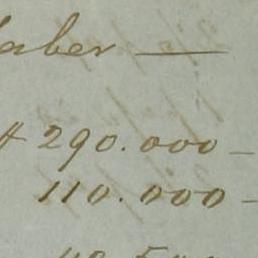 haber —
# 290.000 —
110.000 —